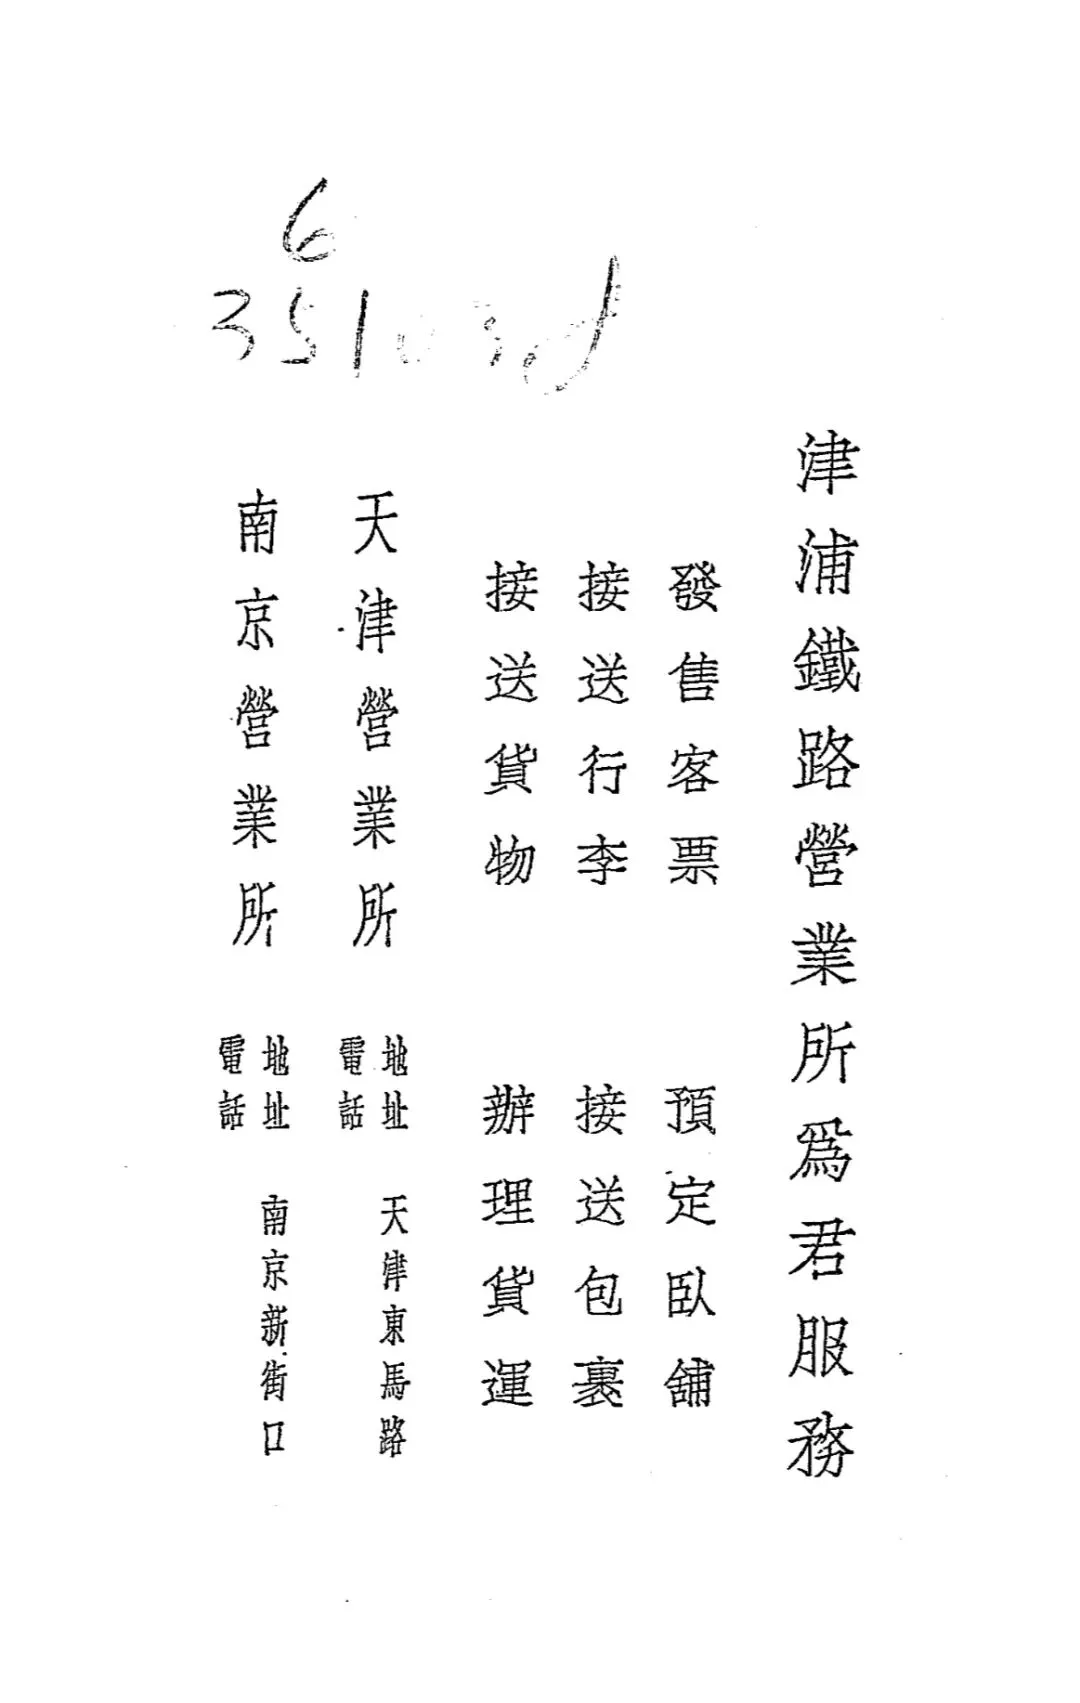 津浦鐵路營業所爲君服務
發售客票 預定臥舖
接送行李 接送包裹
接送貨物 辦理貨運
天津營業所 地址 天津東馬路
電話
南京營業所 地址 南京新街口
電話
6
351